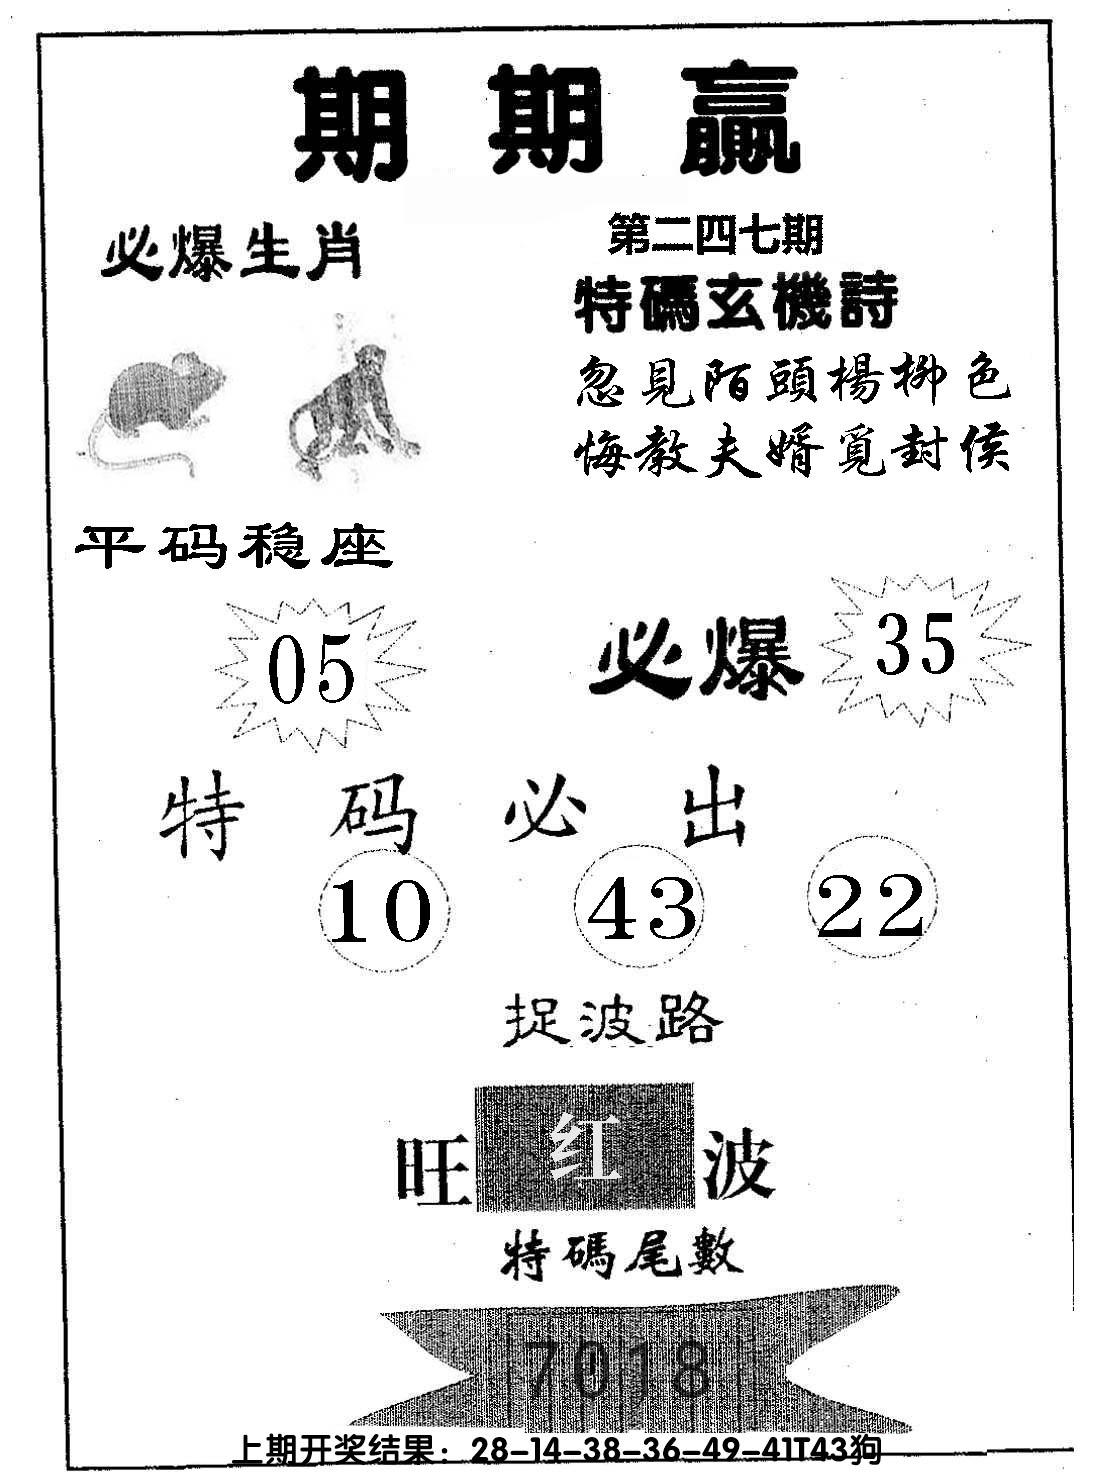 期期赢
必爆生肖
第二四七期
特碼玄機詩
忽見陌頭楊柳色
悔教夫婿覓封侯
平码稳座
05
必爆 35
特码必出
10 43 22
捉波路
旺 红 波
特碼尾數
7018
上期开奖结果：28-14-38-36-49-41T43狗